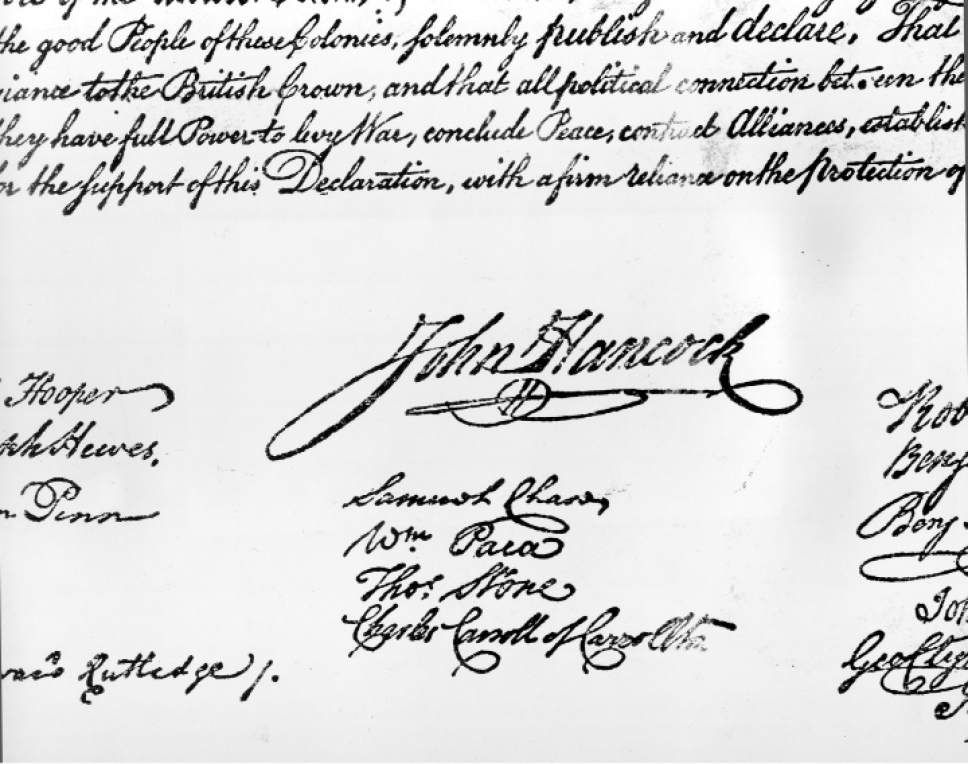 the good People of these Colonies, solemnly publish and declare, That
iance to the British Crown, and that all political connection between the
they have full Power to levy War, conclude Peace, contract Alliances, establish
for the support of this Declaration, with a firm reliance on the protection of
John Hancock
Hooper
Hewes,
Penn
Samuel Chase
Wm. Paca
Thos. Stone
Charles Carroll of Carrollton
Rutledge /.
Rob
Benj
Benj
Joh
Geo Cly